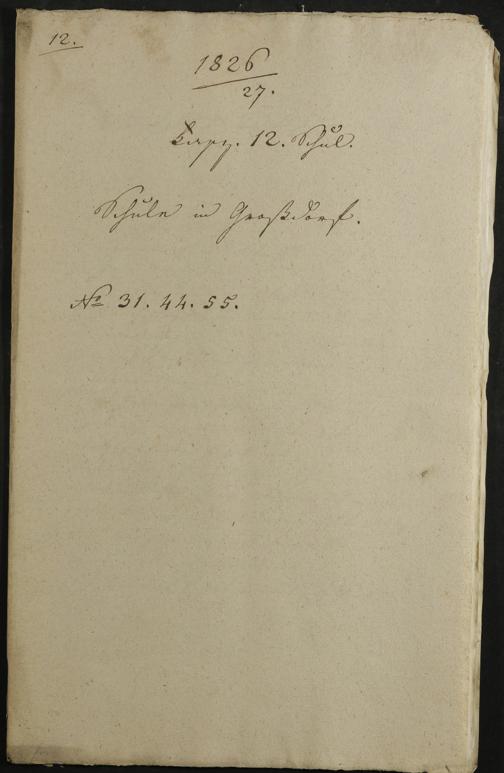 12.
1826
27.
12. Schul.
Schule in Großdorf.
No 31. 44. 55.